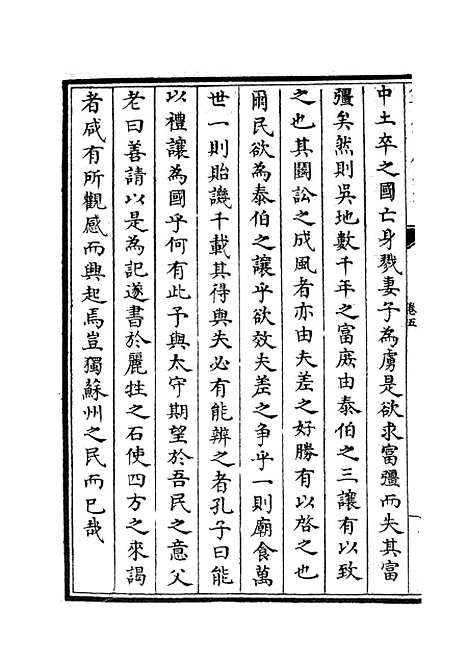 中土卒之國亡身戮妻子為虜是欲求富彊而失其富
彊矣然則吳地數千年之富庶由泰伯之三讓有以致
之也其鬬訟之成風者亦由夫差之好勝有以啓之也
爾民欲為泰伯之讓乎欲效夫差之争乎一則廟食萬
世一則貽譏千載其得與失必有能辨之者孔子曰能
以禮讓為國乎何有此予與太守期望於吾民之意父
老曰善請以是為記遂書於麗牲之石使四方之來謁
者咸有所觀感而興起焉豈獨蘇州之民而已哉
卷五